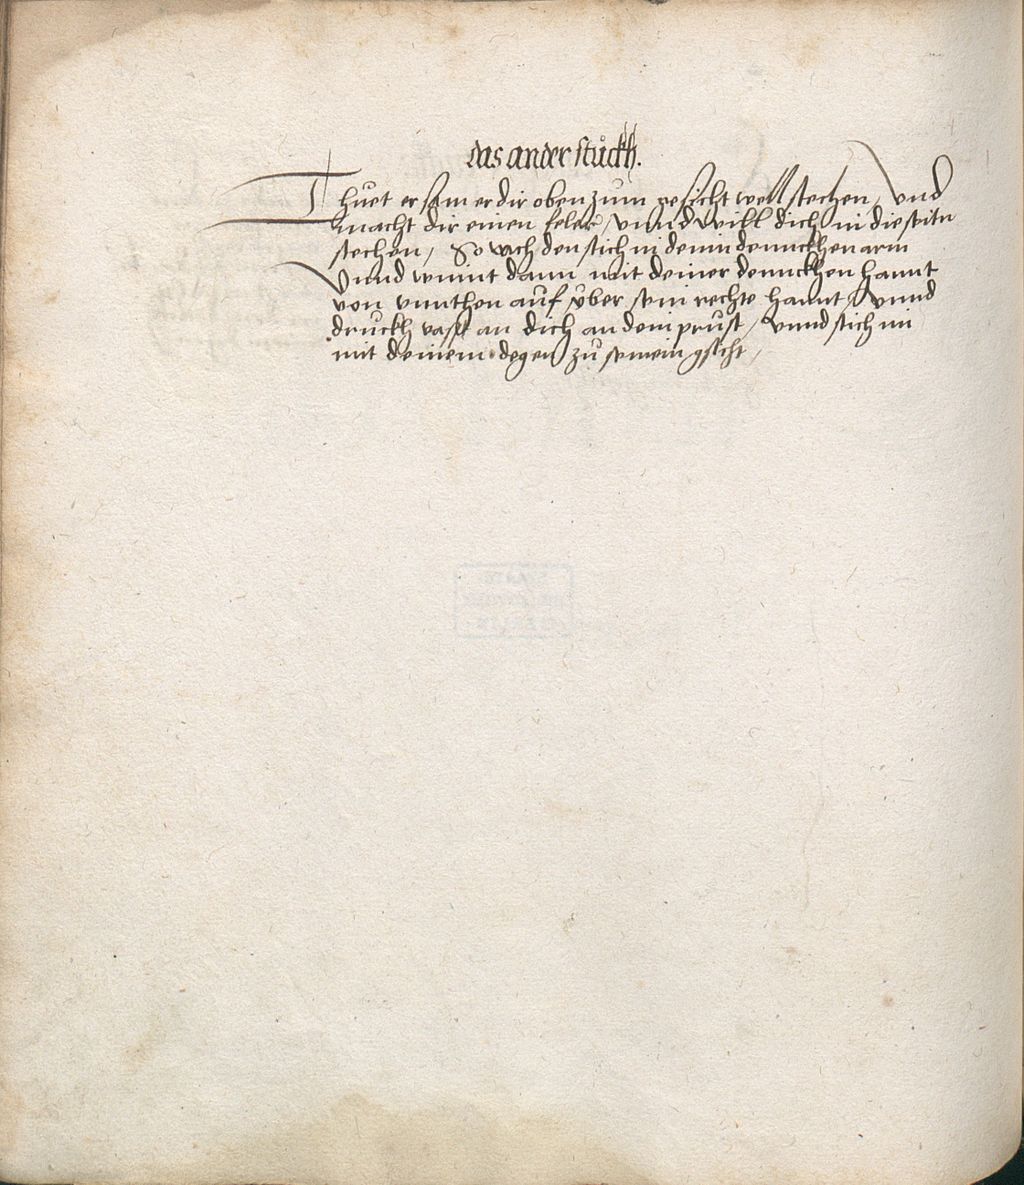 das ander stuckh.
Thuet er sam er dir oben zum gesicht well stechen / Und
macht dir einen feler / unnd will dich in die seitn
stechen / So vach den stich in denn dennckhen arm
Unnd winnt dann mit deiner dennckhen hannt
von unnthen auf uber sein rechte hannt / Unnd
druckh vasst an dich an dein prust / Unnd stich im
mit deinem degen zu seinem gsicht /